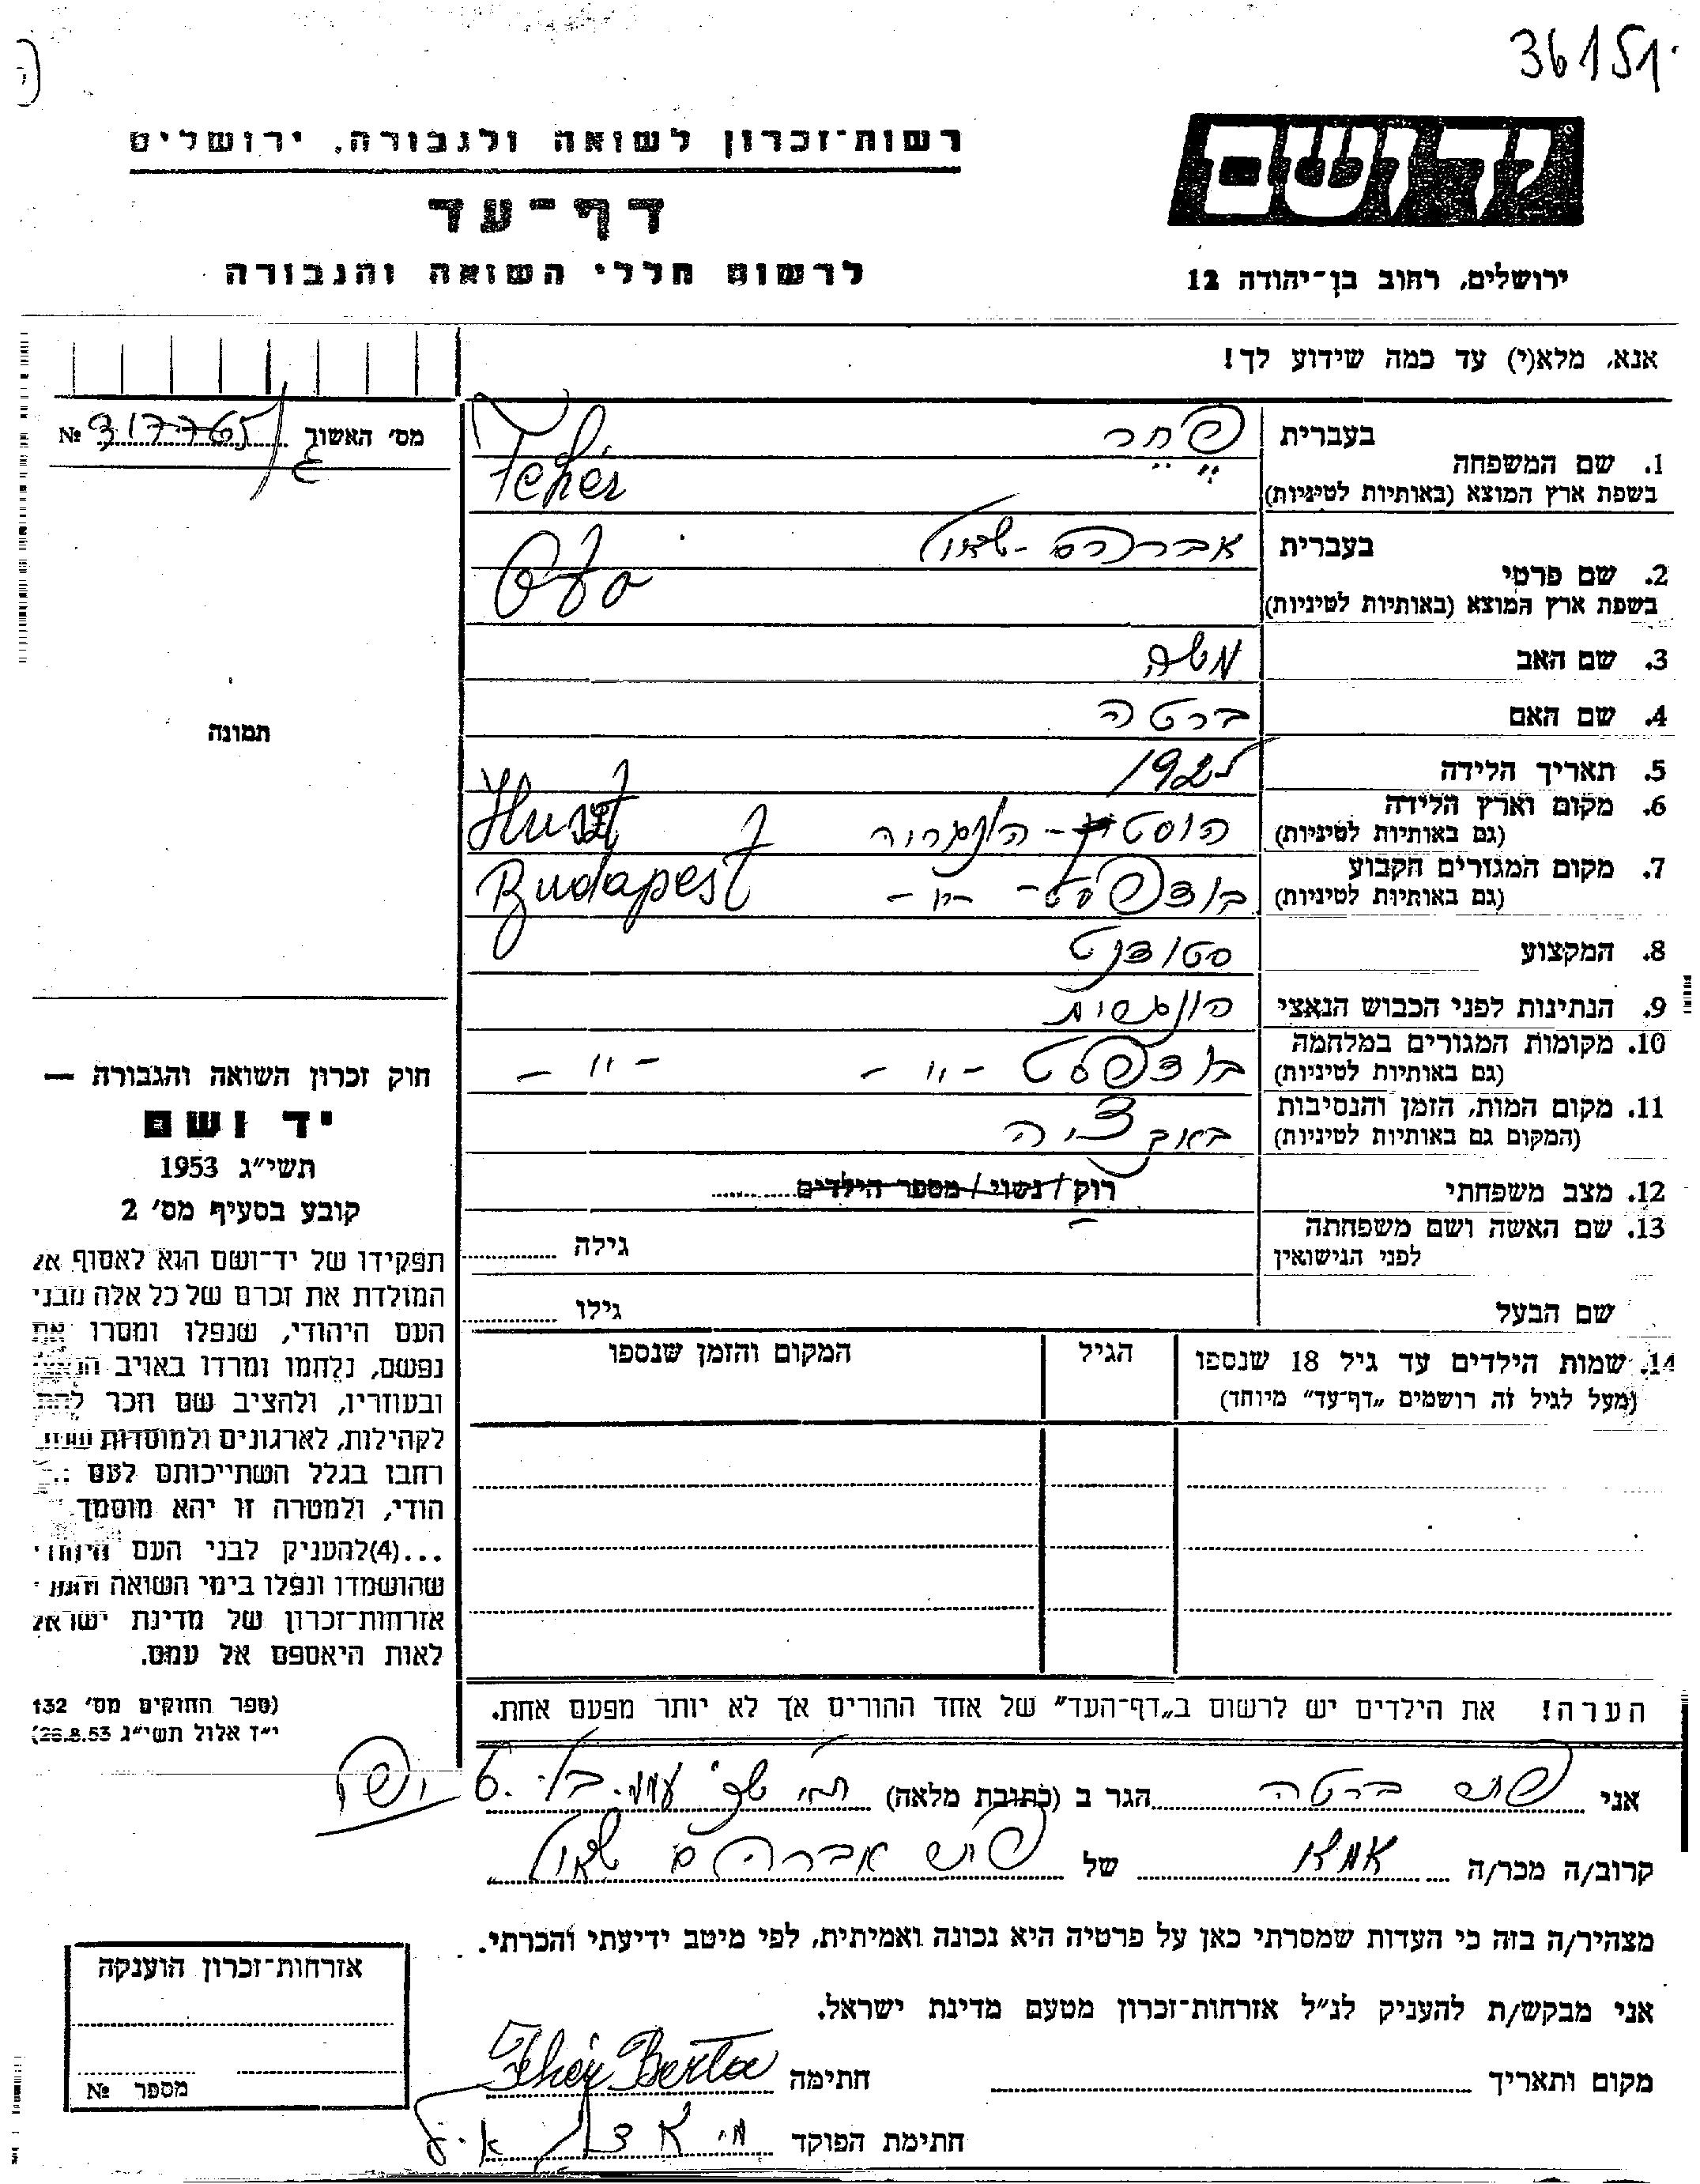 36151
רשות־זכרון לשואה ולגבורה, ירושלים
יד ושם
דף־עד
לרשום חללי השואה והגבורה
ירושלים, רחוב בן־יהודה 12
אנא, מלא(י) עד כמה שידוע לך!
מס׳ האשור № 317765
1. שם המשפחה
בעברית פֶהֵר
בשפת ארץ המוצא (באותיות לטיניות) Fehér
2. שם פרטי
בעברית אברהם-שאול
בשפת ארץ המוצא (באותיות לטיניות)
3. שם האב משה
4. שם האם ברטה
5. תאריך הלידה 1925
6. מקום וארץ הלידה
(גם באותיות לטיניות) הוסט - הונגריה Huszt
7. מקום המגורים הקבוע
(גם באותיות לטיניות) בודפסט - 〃 - Budapest
8. המקצוע סטודנט
9. הנתינות לפני הכבוש הנאצי הונגרית
10. מקומות המגורים במלחמה
(גם באותיות לטיניות) בודפסט - 〃 - - 〃 -
11. מקום המות, הזמן והנסיבות
(המקום גם באותיות לטיניות)
12. מצב משפחתי רוק / נשוי / מספר הילדים
13. שם האשה ושם משפחתה
לפני הנישואין גילה
שם הבעל גילו
14. שמות הילדים עד גיל 18 שנספו הגיל המקום והזמן שנספו
(מעל לגיל זה רושמים „דף־עד״ מיוחד)
הערה! את הילדים יש לרשום ב„דף־העד״ של אחד ההורים אך לא יותר מפעם אחת.
תמונה
חוק זכרון השואה והגבורה —
יד ושם
תשי״ג 1953
קובע בסעיף מס׳ 2
תפקידו של יד־ושם הוא לאסוף אל
המולדת את זכרם של כל אלה מבני
העם היהודי, שנפלו ומסרו את
נפשם, נלחמו ומרדו באויב הנאצי
ובעוזריו, ולהציב שם וזכר להם,
לקהילות, לארגונים ולמוסדות שנח־
רחבו בגלל השתייכותם לעם
הודי, ולמטרה זו יהא מוסמך
...(4)להעניק לבני העם היהודי
שהושמדו ונפלו בימי השואה
אזרחות־זכרון של מדינת ישראל
לאות היאספם אל עמם.
(ספר החוקים מס׳ 132
י״ד אלול תשי״ג 26.8.53)
אני ברטה הגר ב (כתובת מלאה)
קרוב/ה מכר/ה אמא של אברהם שאול
מצהיר/ה בזה כי העדות שמסרתי כאן על פרטיה היא נכונה ואמיתית, לפי מיטב ידיעתי והכרתי.
אני מבקש/ת להעניק לנ״ל אזרחות־זכרון מטעם מדינת ישראל.
מקום ותאריך חתימה Fehér Berta
חתימת הפוקד
אזרחות־זכרון הוענקה
מספר №